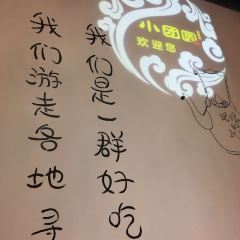 小团圆
欢迎您
我们是一群好吃
我们游走各地寻